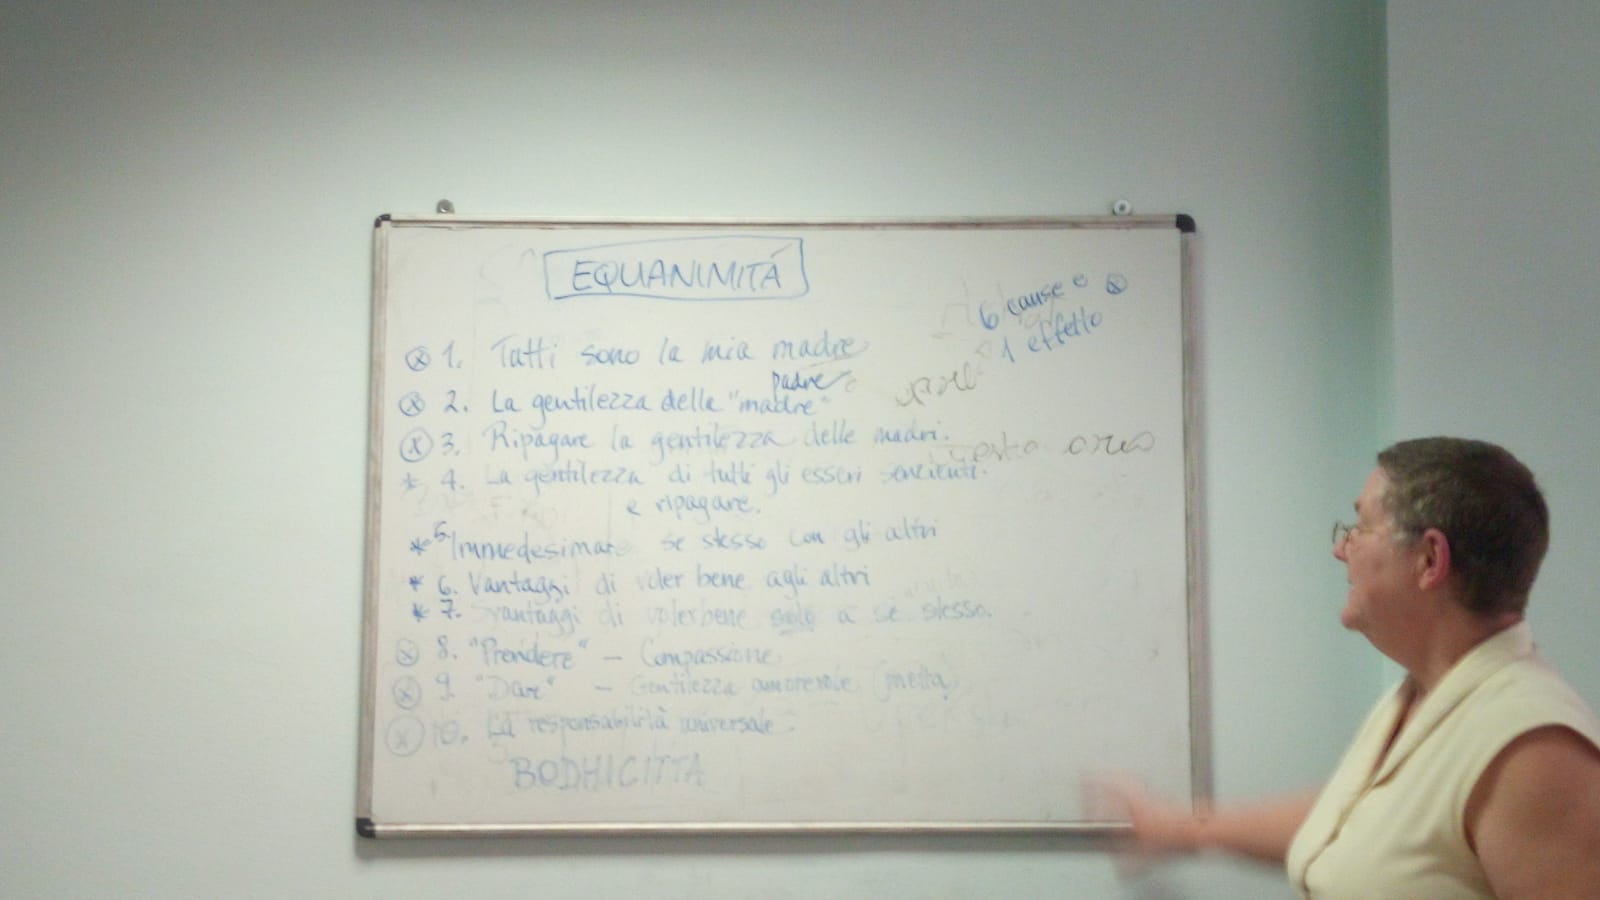 EQUANIMITÁ
6 cause e ⊗
1 effetto
⊗ 1. Tutti sono la mia madre
padre
⊗ 2. La gentilezza della "madre"
⊗ 3. Ripagare la gentilezza delle madri.
* 4. La gentilezza di tutti gli esseri senzienti.
e ripagare.
* 5. Immedesimare se stesso con gli altri
* 6. Vantaggi di voler bene agli altri
* 7. Svantaggi di voler bene solo a se stesso.
⊗ 8. "Prendere" – Compassione
⊗ 9. "Dare" – Gentilezza amorevole (metta)
⊗ 10. La responsabilità universale.
BODHICITTA